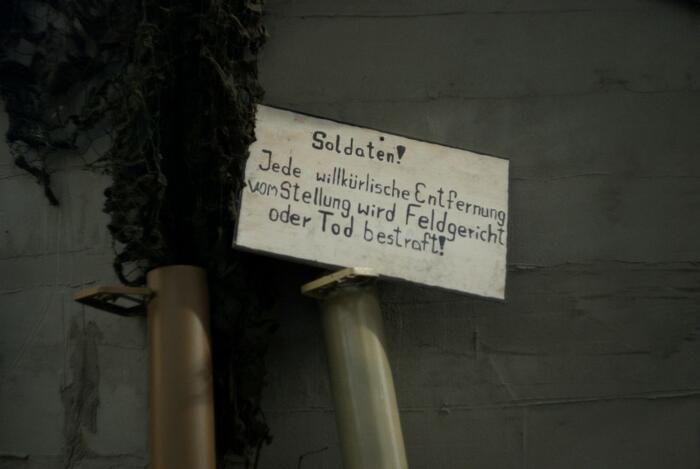 Soldaten!
Jede willkürlische Entfernung
vom Stellung wird Feldgericht
oder Tod bestraft!